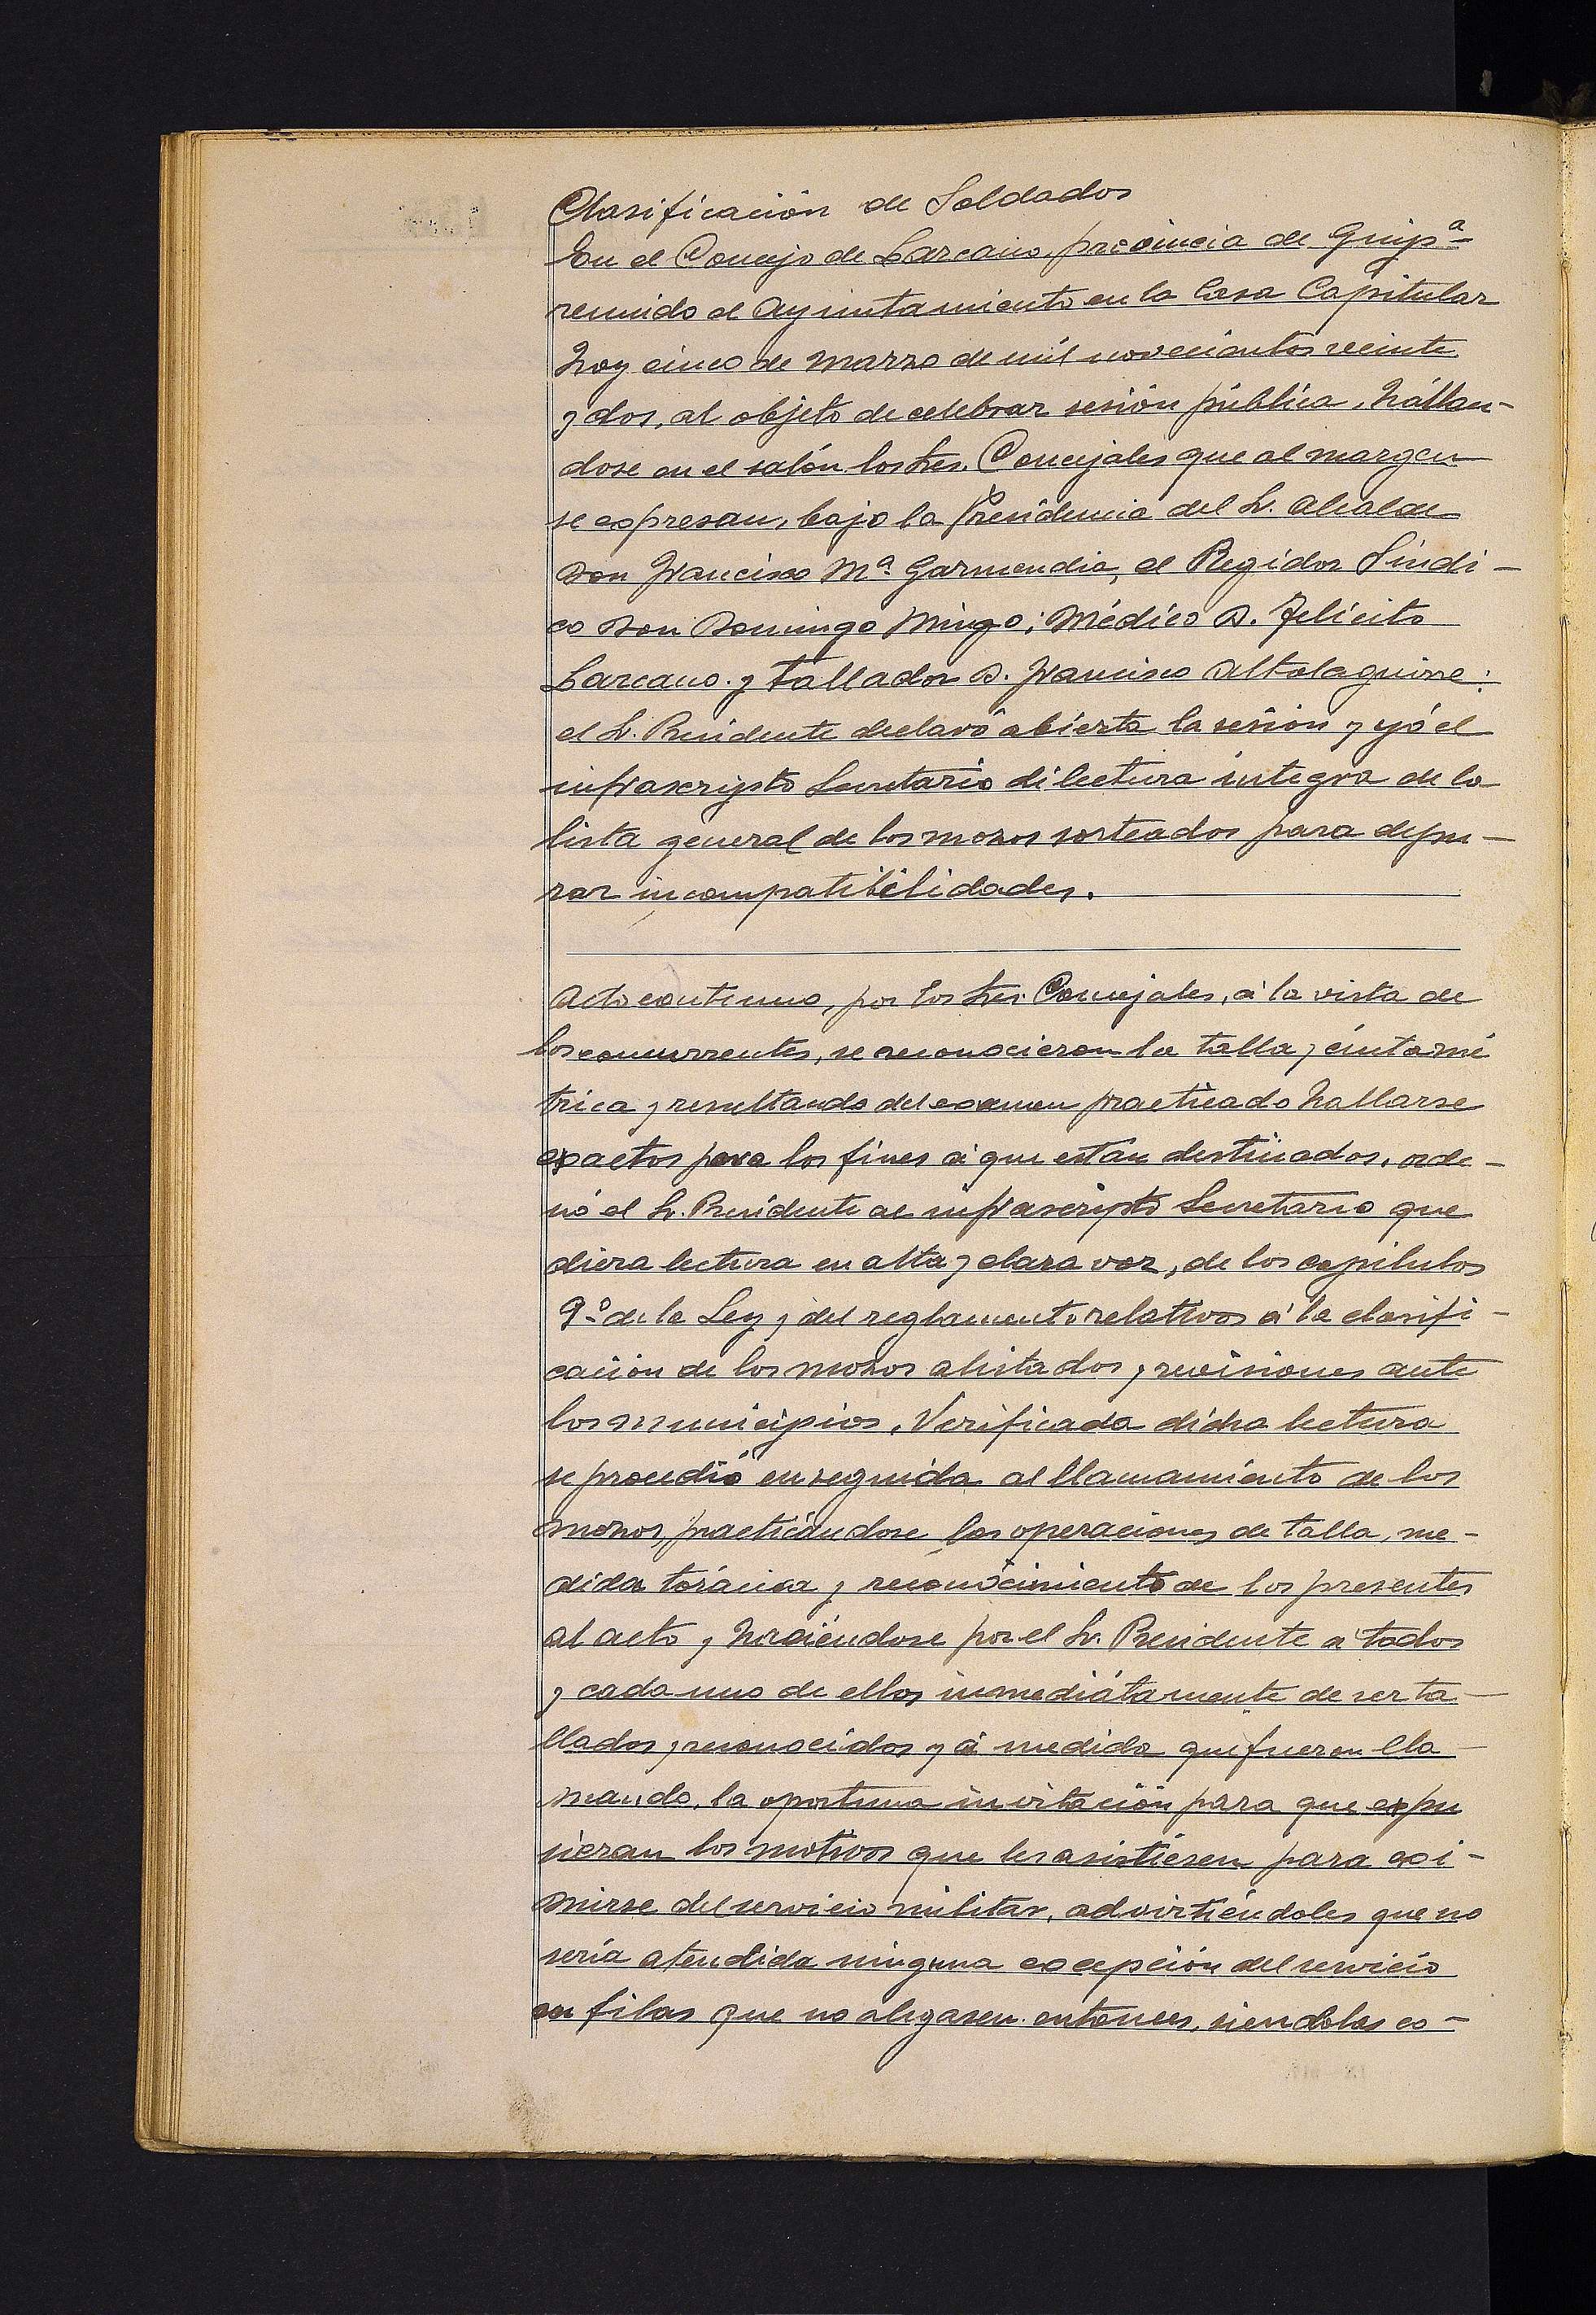 Clasificación de Soldados
En el Concejo de Lazcano, provincia de Guipª
reunido el Ayuntamiento en la Casa Capitular
hoy cinco de Marzo de mil novecientos veinte
y dos, al objeto de celebrar sesión pública, hállan-
dose en el salón los Sres. Concejales que al margen
se expresan, bajo la Presidencia del Sr. Alcalde
Don Francisco Mª Garmendia, el Regidor Síndi-
co Don Domingo Mingo; Médico D. Felicito
Lazcano y Tallador D. Francisco Altolaguirre:
el Sr. Presidente declaró abierta la sesión y yó el
infrascripto Secretario di lectura integra de la
lista general de los mozos sorteados para depu-
rar incompatibilidades.
Acto continuo, por los Sres. Concejales, á la vista de
los concurrentes, se reconocieron la talla y cinta mé
trica y resultando del examen practicado hallarse
exactos para los fines á que están destinados, orde-
nó el Sr. Presidente al infrascripto Secretario que
diera lectura en alta y clara voz, de los capitulos
9º de la Ley y del reglamento relativos á la clasifi-
cación de los mozos alistados y revisiones ante
los municipios. Verificada dicha lectura
se procedió enseguida al llamamiento de los
mozos, practicándose las operaciones de talla, me-
dida torácica y reconocimiento de los presentes
al acto y haciéndose por el Sr. Presidente a todos
y cada uno de ellos inmediátamente de ser ta-
llados y reconocidos y á medida que fueron lla-
mando, la oportuna invitación para que expu
sieran los motivos que les asistiesen para exi-
mirse del servicio militar, advirtiéndoles que no
sería atendida ninguna excepción del servicio
en filas que no alegasen entonces, siendoles co-